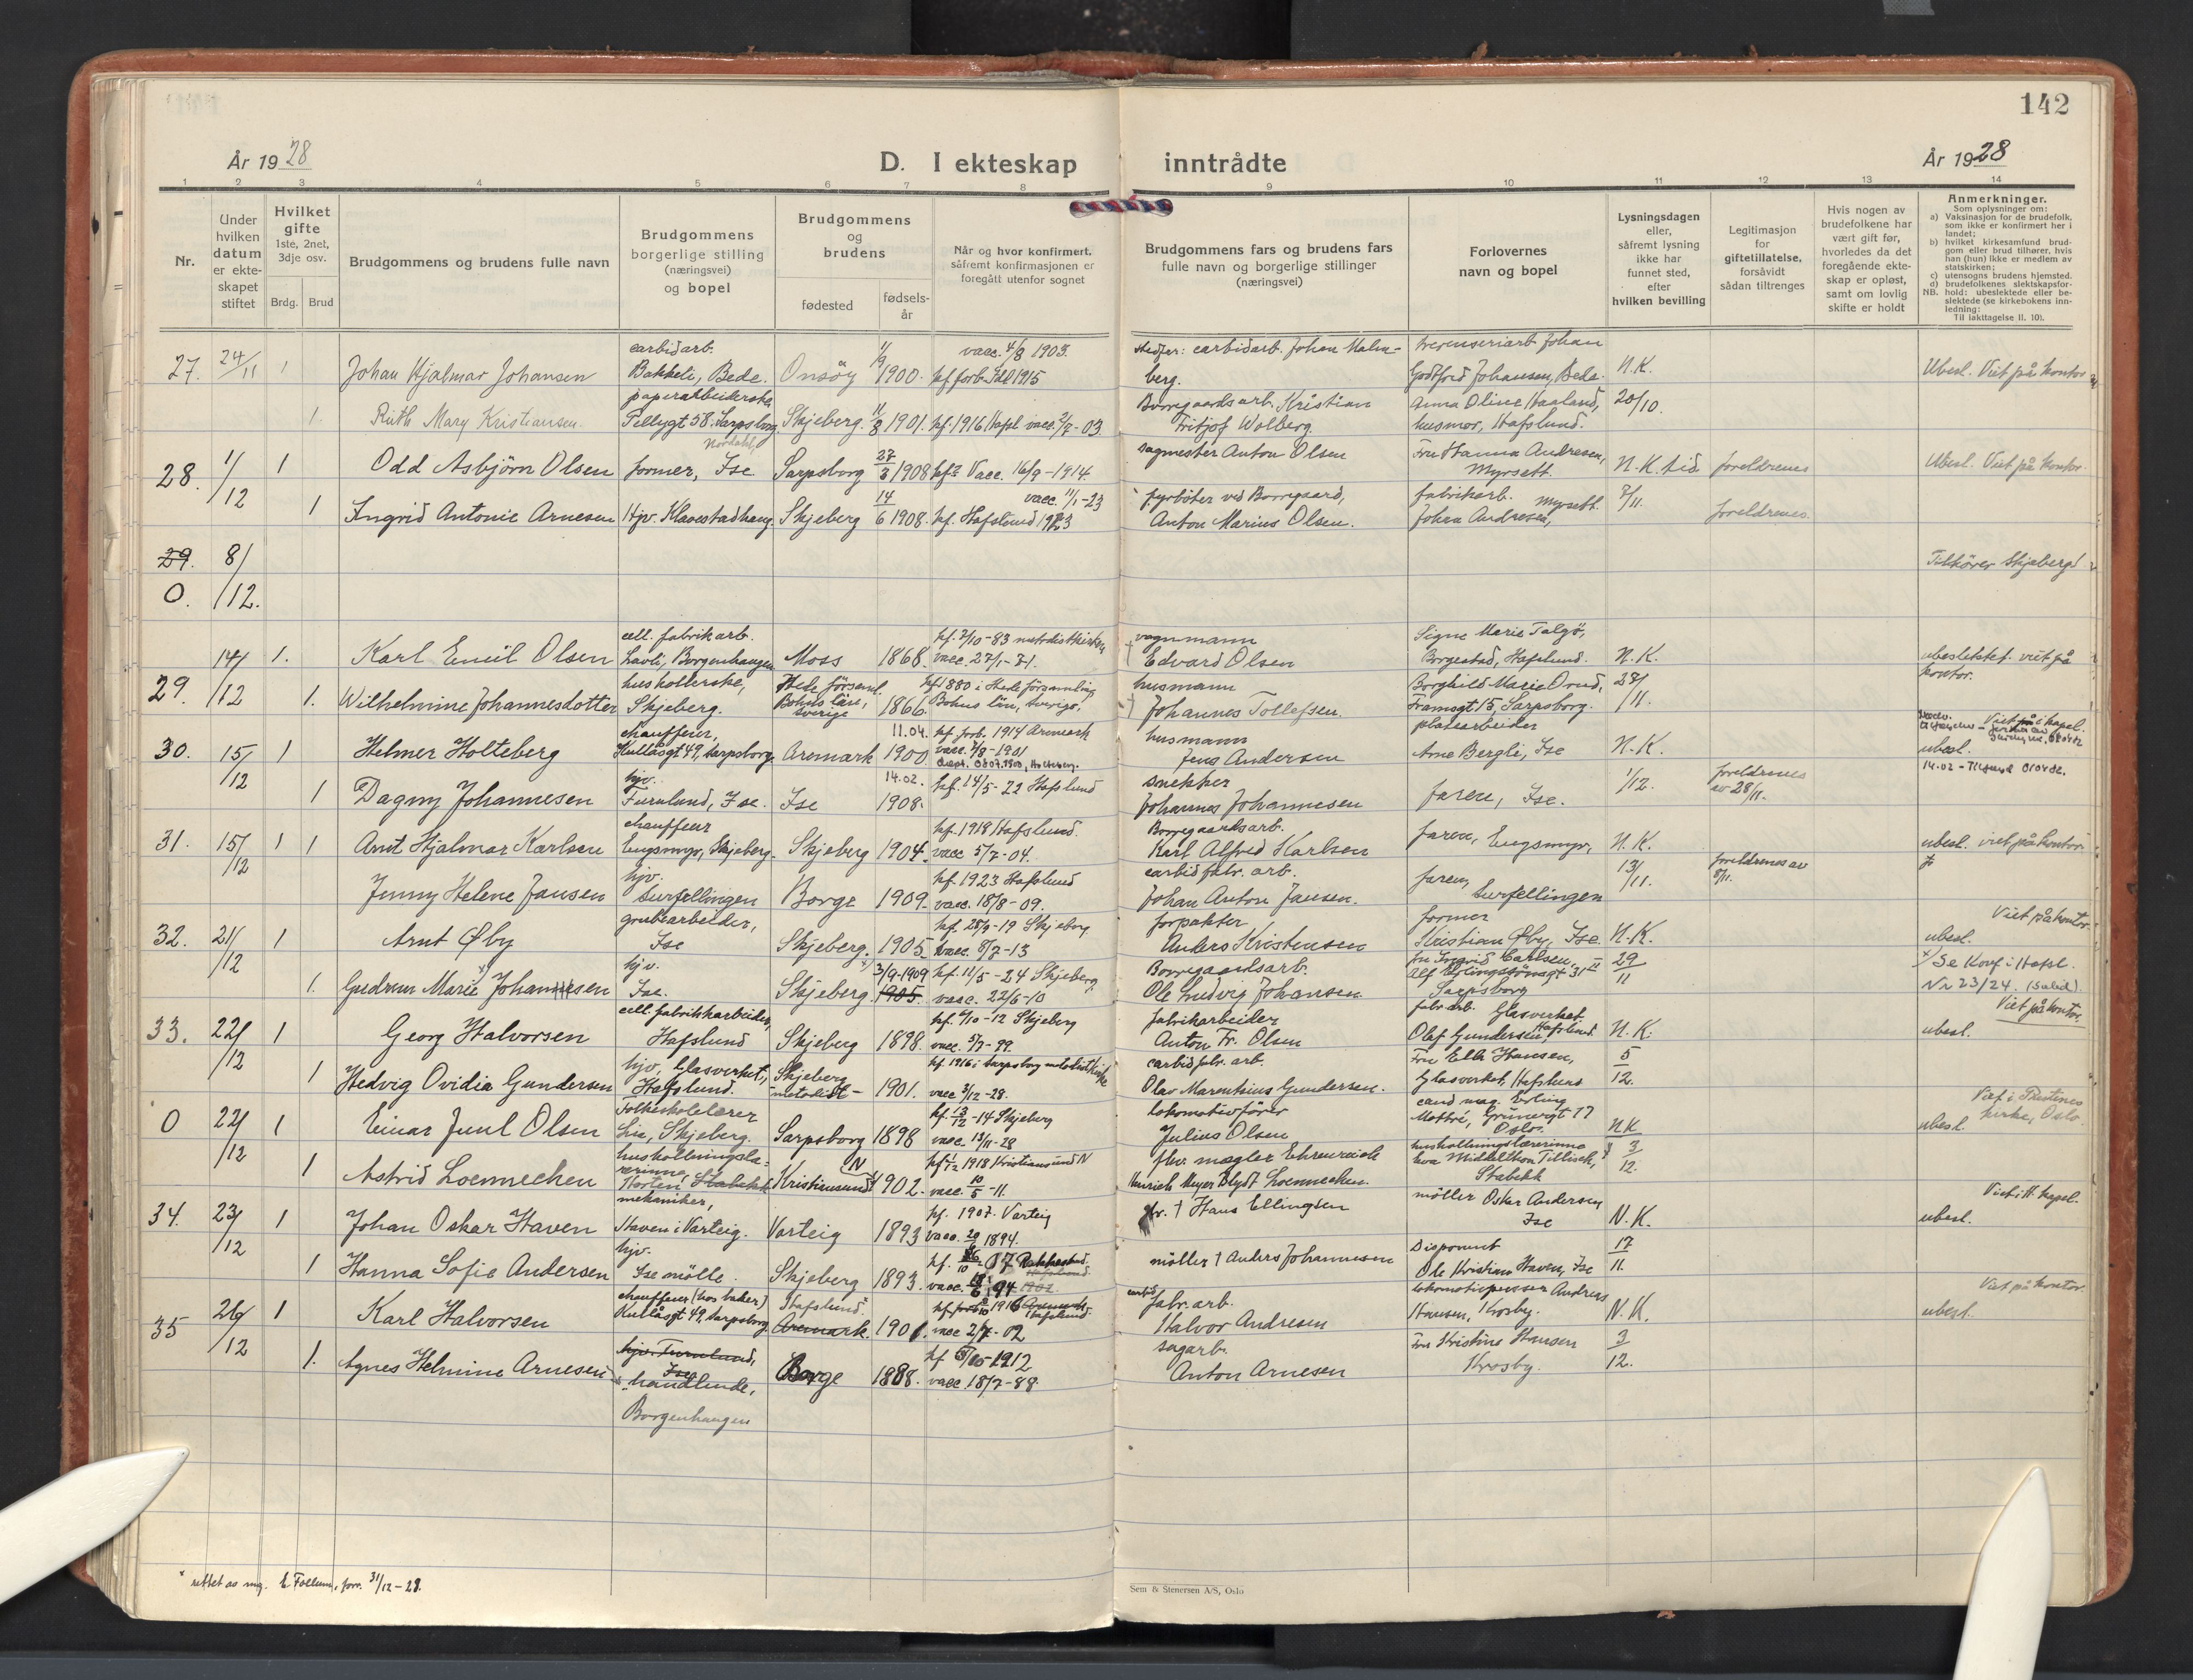 142
År 1928
D. I ekteskap inntrådte
År 1928
1 2 3 4 5 6 7 8 9 10 11 12 13 14
Nr.
Under hvilken datum er ekteskapet stiftet
Hvilket gifte 1ste, 2net, 3dje osv.
Brdg. Brud
Brudgommens og brudens fulle navn
Brudgommens borgerlige stilling (næringsvei) og bopel
Brudgommens og brudens
fødested
fødsels-år
Når og hvor konfirmert, såfremt konfirmasjonen er foregått utenfor sognet
Brudgommens fars og brudens fars fulle navn og borgerlige stillinger (næringsvei)
Forlovernes navn og bopel
Lysningsdagen eller, såfremt lysning ikke har funnet sted, efter hvilken bevilling
Legitimasjon for giftetillatelse, forsåvidt sådan tiltrenges
Hvis nogen av brudefolkene har vært gift før, hvorledes da det foregående ekteskap er opløst, samt om lovlig skifte er holdt
Anmerkninger.
Som oplysninger om:
a) Vaksinasjon for de brudefolk, som ikke er konfirmert her i landet;
b) hvilket kirkesamfund brudgom eller brud tilhører, hvis han (hun) ikke er medlem av statskirken;
c) utensogns brudens hjemsted.
d) brudefolkenes slektskapsforhold: ubeslektede eller beslektede (se kirkebokens innledning:
NB. Til iakttagelse II. 10).
27. 24/11 1 Johan Hjalmar Johansen carbidarb. Bakkeli, Bede. Onsöy 11/9 1900. vacc. 4/8 1903. kf. forb. Idd 1915 stedfar: carbidarb. Johan Malmberg. Johan Godtfred Johansen, Bede. N.K. Ubesl. Viet på kontor
1. Ruth Mary Kristiansen paperarbeiderske Pellygt 58. Sarpsborg. Skjeberg. 11/8 1901. kf. 1916 Hafsl. vacc. 2/7-03. Borregaardsarb. Kristian Fritjof Wolberg. Anna Oline Haaland, husmor, Hafslund. 20/10.
28. 1/12 1 Odd Asbjörn Olsen former, Ise Sarpsborg 27/3 1908 kf.? Vacc. 16/9-1914. sagmester Anton Olsen Fru Hanna Andresen, Myrsett. N.K. tid foreldrenes Ubesl. Viet på kontor.
1 Ingrid Antonie Arnesen Hjv. Klavestadhaug. Skjeberg 14/6 1908. vacc. 11/1-23 kf. Hafslund 1923 fyrböter ved Borregaard, Anton Marius Olsen. fabrikarb. Johan Andresen, Myrsett. 7/11. foreldrenes.
29. 0. 8/12. Tilhörer Skjeberg
29. 14/12 1. Karl Emil Olsen cell. fabrikarb. Lavli, Borgenhaugen Moss 1868. kf. 7/10-83 metodistkirken vacc. 27/1-71. vognmann † Edvard Olsen Signe Marie Talgö, Borgestad, Hafslund. N.K. ubeslektet. viet på kontor.
1. Wilhelmine Johannesdotter husholderske, Skjeberg. Hede församl. Bohus län, Sverige 1866. kf. 1880 i Hede församling Bohus län, Sverige. husmann † Johannes Tollefsen. Borghild Marie Orud, Framsgt 15, Sarpsborg. 28/11.
30. 15/12 1 Helmer Holteberg chauffeur, Kullåsgt 49, Sarpsborg. Aremark 11.04. 1900. kf. forb. 1914 Aremark vacc. 7/8-1901 husmann Jens Andersen platearbeider Arne Bergli, Ise N.K. Viet i kapel. ubesl.
1 Dagny Johannesen hjv. Furulund, Ise. Ise 14.02. 1908. kf. 14/5-22 Hafslund snekker Johannes Johannesen faren, Ise. 1/12. foreldrenes av 28/11.
31. 15/12 1 1 Arnt Hjalmar Karlsen chauffeur Engsmyr, Skjeberg. Skjeberg 1904. kf. 1918 Hafslund. vacc 5/7-04. Borregaardsarb. Karl Alfred Karlsen faren, Engsmyr, N.K. ubesl. viet på kontor.
Jenny Helene Jansen hjv. Surfellingen Borge 1909. kf. 1923 Hafslund vacc. 18/8-09. carbidfabr. arb. Johan Anton Jansen. faren, Surfellingen 13/11. foreldrenes av 8/11.
32. 21/12 1 Arnt Øby grubearbeider, Ise Skjeberg. 1905 kf. 28/9-19 Skjeberg vacc. 8/7-13 forpakter Anders Kristensen former Kristian Øby, Ise. N.K. Viet på kontor. ubesl.
1. Gudrun Marie Johannesen hjv. Ise. Skjeberg 3/9-1909 1905. kf. 11/5-24 Skjeberg. vacc. 22/6-10 Borregaardsarb. Ole Ludvig Johansen. fru Ingrid Carlsen, Alf Erlingssönsgt 31 II Sarpsborg 29/11 x/ Se Konf i Hafsl. Nr 23/24.
33. 22/12 1 Georg Halvorsen cell. fabrikkarbeider, Hafslund Skjeberg 1898. kf. 6/10-12 Skjeberg vacc. 5/7-99. fabrikarbeider Anton Fr. Olsen fabr. arb. Olaf Gundersen, Glasverket Hafslund N.K. Viet på kontor. ubesl.
1 Hedvig Ovidia Gundersen hjv, Glasverket, Hafslund. Skjeberg metodist 1901. kf. 1916 i Sarpsborg metodistkirke vacc 3/12-28. carbidfabr. arb. Olav Marentsius Gundersen. Fru Elli Hansen, Glasverket, Hafslund 5/12.
0 22/12 1 Einar Juul Olsen Folkeskolelærer Lia, Skjeberg. Sarpsborg 1898 kf. 13/12-14 Skjeberg vacc. 13/11-28 Lokomotivförer Julius Olsen cand mag. Erling Mothé, Grünersgt 17 Oslo. N.K Viet i Paulines kirke, Oslo. ubesl.
1 Astrid Loennechen husholdningslærerinne, Horten Stabekk Kristiansund N 1902. kf 1/12 1918 Kristiansund N vacc. 10/5-11. fhv. mægler Ehrenreich Hinrich Meyer Blydt Loennechen. husholdningslærerinne Middelthon Tillisch, Stabekk 3/12.
34. 23/12 1 Johan Oskar Haven mekaniker, Haven i Varteig. Varteig 1893 kf. 1907. Varteig vacc. 20/9 1894. † Hans Ellingsen möller Oskar Andersen, Ise N.K. Viet i H. kapel. ubesl.
1 Hanna Sofie Andersen hjv. Ise mölle. Skjeberg 1893. kf. 07 Rakkestad. vacc. 94 möller † Anders Johannesen Disponent Ole Kristian Haven, Ise 17/11.
35 26/12 1 Karl Halvorsen chauffeur (hos baker) Kullåsgt 49, Sarpsborg Hafslund Aremark. 1901. kf 1916 Hafslund. vacc 2/7-02 carbid fabr. arb. Halvor Andresen lokomotivpusser Andreas Hansen, Krosby. N.K. Viet på kontor. ubesl.
1. Agnes Helmine Arnesen hjv. Furulund, Ise handlende, Borgenhaugen Borge 1888. kf 1912 vacc. 18/7-88. sagarb. Anton Arnesen Fru Kristine Hansen Krosby. 3/12.
* rettet av mg. E. Follum, forr. 31/12-28.
Sem & Stenersen A/S, Oslo